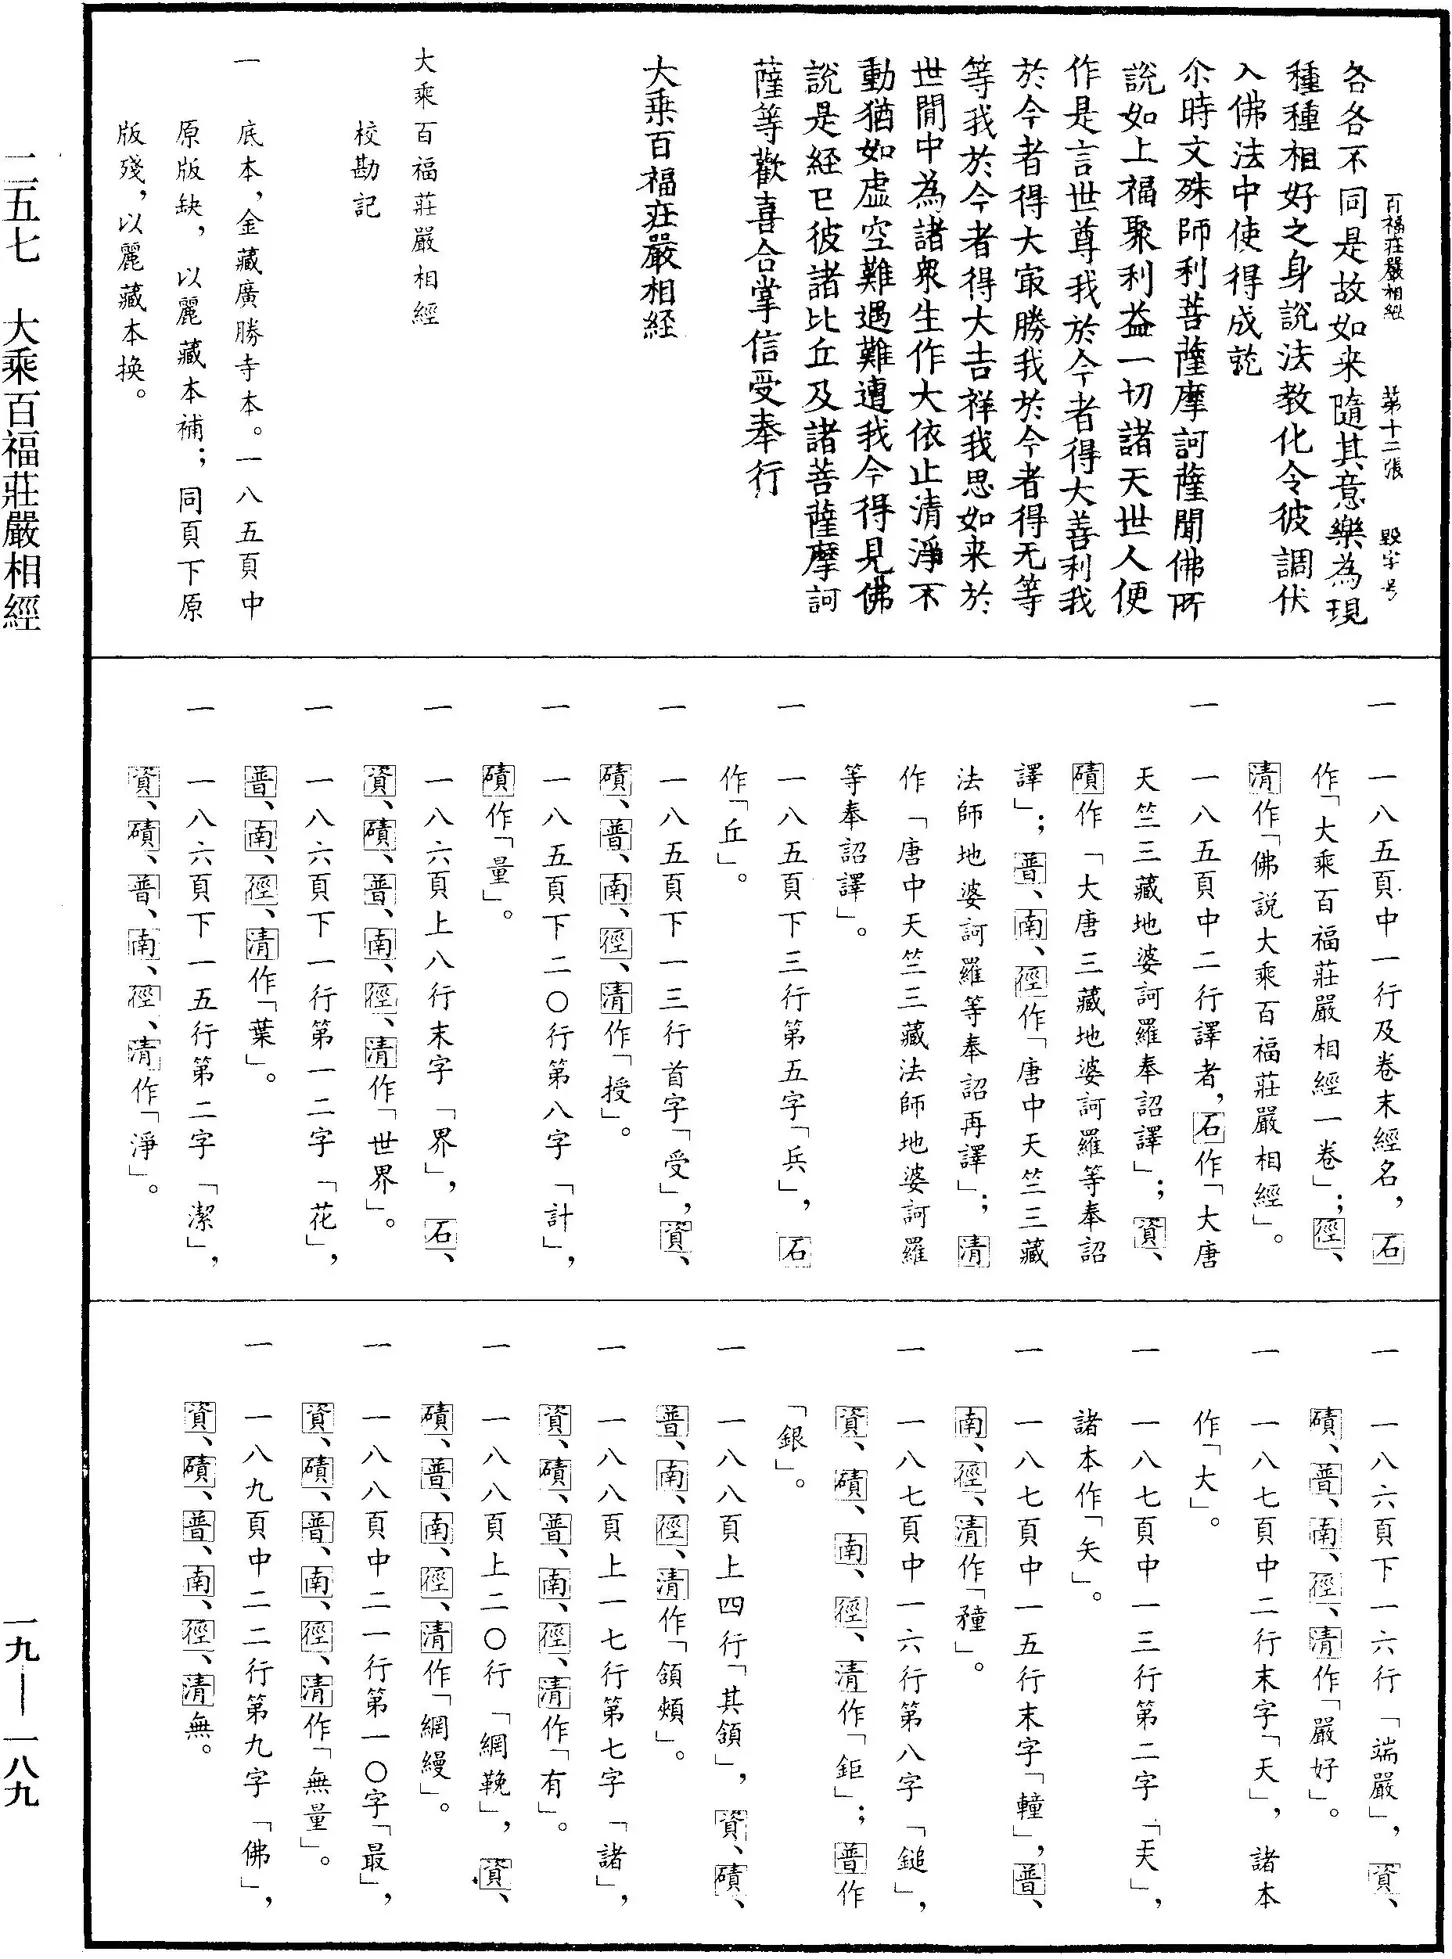 百福莊嚴相經　第十二張　毀字号
各各不同是故如来隨其意樂為現
種種相好之身說法教化令彼調伏
入佛法中使得成就
尒時文殊師利菩薩摩訶薩聞佛所
說如上福聚利益一切諸天世人便
作是言世尊我於今者得大善利我
於今者得大㝡勝我於今者得无等
等我於今者得大吉祥我思如来於
世間中為諸眾生作大依止清淨不
動猶如虛空難遇難遭我今得見佛
說是經已彼諸比丘及諸菩薩摩訶
薩等歡喜合掌信受奉行
大乘百福莊嚴相経
大乘百福莊嚴相經
校勘記
一　底本，金藏廣勝寺本。一八五頁中
原版缺，以麗藏本補；同頁下原
版殘，以麗藏本換。
一　一八五頁中一行及卷末經名，石
作「大乘百福莊嚴相經一卷」；徑、
清作「佛說大乘百福莊嚴相經」。
一　一八五頁中二行譯者，石作「大唐
天竺三藏地婆訶羅奉詔譯」；資、
磧作「大唐三藏地婆訶羅等奉詔
譯」；普、南、徑作「唐中天竺三藏
法師地婆訶羅等奉詔再譯」；清
作「唐中天竺三藏法師地婆訶羅
等奉詔譯」。
一　一八五頁下三行第五字「兵」，石
作「丘」。
一　一八五頁下一三行首字「受」，資、
磧、普、南、徑、清作「授」。
一　一八五頁下二〇行第八字「計」，
磧作「量」。
一　一八六頁上八行末字「界」，石、
資、磧、普、南、徑、清作「世界」。
一　一八六頁下一行第一二字「花」，
普、南、徑、清作「葉」。
一　一八六頁下一五行第二字「潔」，
資、磧、普、南、徑、清作「淨」。
一　一八六頁下一六行「端嚴」，資、
磧、普、南、徑、清作「嚴好」。
一　一八七頁中二行末字「天」，諸本
作「大」。
一　一八七頁中一三行第二字「天」，
諸本作「矢」。
一　一八七頁中一五行末字「䡴」，普、
南、徑、清作「穜」。
一　一八七頁中一六行第八字「鎚」，
資、磧、南、徑、清作「鉅」；普作
「銀」。
一　一八八頁上四行「其頷」，資、磧、
普、南、徑、清作「頷頰」。
一　一八八頁上一七行第七字「諸」，
資、磧、普、南、徑、清作「有」。
一　一八八頁上二〇行「網鞔」，資、
磧、普、南、徑、清作「網縵」。
一　一八八頁中二一行第一〇字「最」，
資、磧、普、南、徑、清作「無量」。
一　一八九頁中二二行第九字「佛」，
資、磧、普、南、徑、清無。
二五七　大乘百福莊嚴相經
一九——一八九